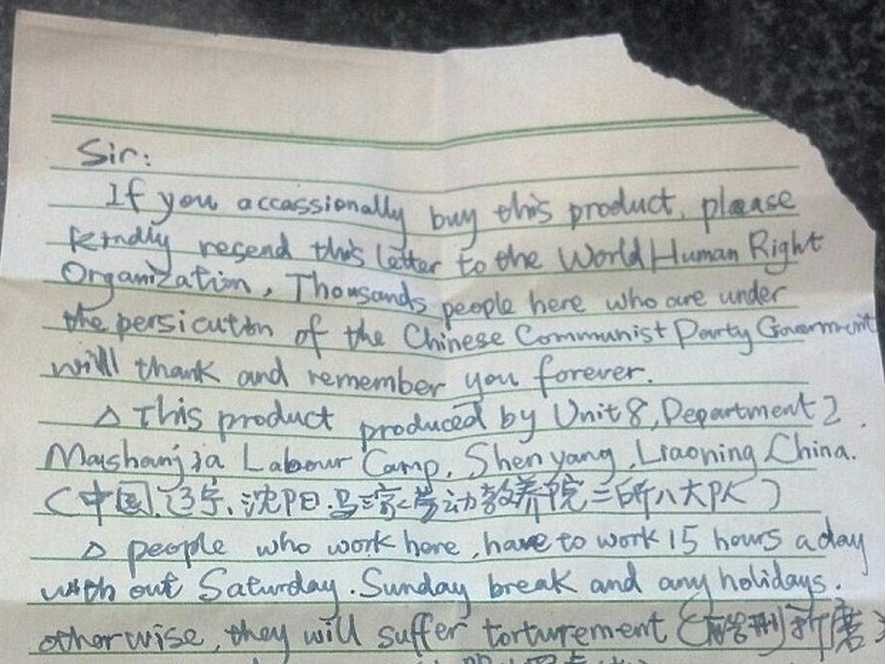 Sir:
If you accassionally buy this product, please
kindly resend this letter to the World Human Right
Organization, Thousands people here who are under
the persicution of the Chinese Communist Party Government
will thank and remember you forever.
△ This product produced by Unit 8, Department 2,
Mashanjia Labour Camp, Shenyang, Liaoning, China.
(中国.辽宁、沈阳.马三家劳动教养院二所八大队)
△ people who work here, have to work 15 hours a day
with out Saturday. Sunday break and any holidays.
otherwise, they will suffer torturement (酷刑折磨